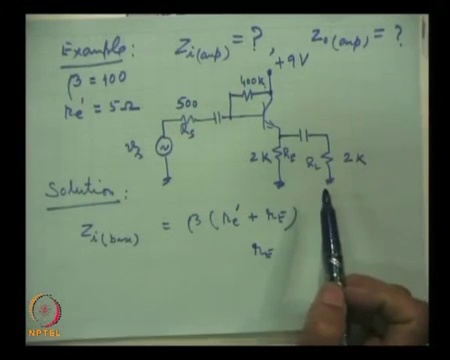 Example: Zi(amp) = ? , Zo(amp) = ?
β = 100
re' = 5Ω
+9V
400K
500
RS
vs
2K RE
RL 2K
Solution:
Zi(base) = β (re' + rE)
rE
NPTEL